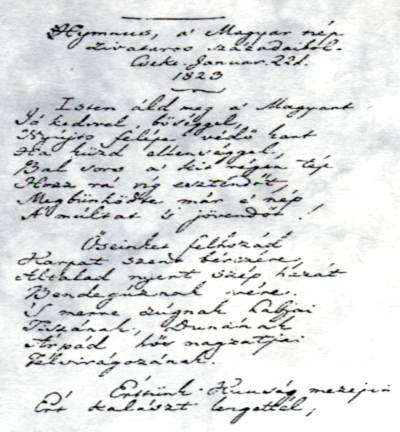 Hymnus, a' Magyar nép
zivataros századaiból.
Cseke. Januar. 22d.
1823
Isten áldd meg a' Magyart
Jó kedvvel, bőséggel,
Nyújts feléje védő kart
Ha küzd ellenséggel;
Bal sors a' kit régen tép
Hozz rá víg esztendőt,
Megbünhődte már e' nép
A' múltat 's jövendőt!
Őseinket felhozád
Kárpát szent bérczére,
Általad nyert szép hazát
Bendegúznak vére.
'S merre zúgnak habjai
Tiszának, Dunának
Árpád hős magzatjai
Felvirágozának.
Értünk Kunság mezején
Ért kalászt lengettél,